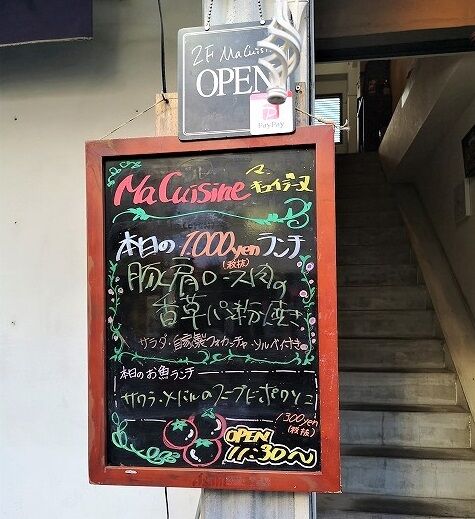 2F Ma Cuisine
OPEN
PayPay
Ma Cuisine マ・キュイジーヌ
本日の 1,000yen ランチ
(税抜)
豚肩ロース肉の
香草パン粉焼き
サラダ・自家製フォカッチャ・ソルベ付き
本日のお魚ランチ
サワラ・ムール
1300yen
(税抜)
OPEN
11:30〜